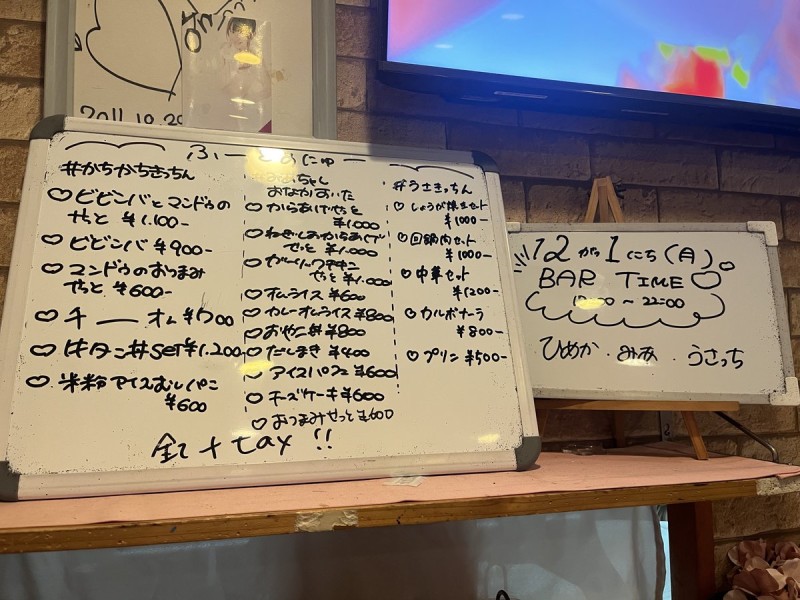 2011.10.20
ふーどめにゅー
#かちかちきっちん
♡ビビンバとマンドゥの
せっと ¥1.100-
♡ビビンバ ¥900-
♡マンドゥのおつまみ
せっと ¥600-
♡チーオム ¥700
♡牛タン丼set ¥1.200-
♡米粉アイスおしパニ
¥600
おなかおいた
♡からあげせっと
¥1.000
♡ねぎしおからあげ
せっと ¥1.000
せっと ¥1.000
♡オムライス ¥600
♡カレーオムライス ¥800
♡おやこ丼 ¥800
♡だしまき ¥400
♡アイスパフェ ¥600
♡チーズケーキ ¥600
♡おつまみせっと ¥600
#うさきっちん
♡しょうが焼きセット
¥1000-
♡回鍋肉セット
¥1000-
♡中華セット
¥1200-
♡カルボナーラ
¥800-
♡プリン ¥500-
全て+tax!!
12がつ1にち(月)
BAR TIME♡
~ 22:00
ひめか・みあ・うさっち